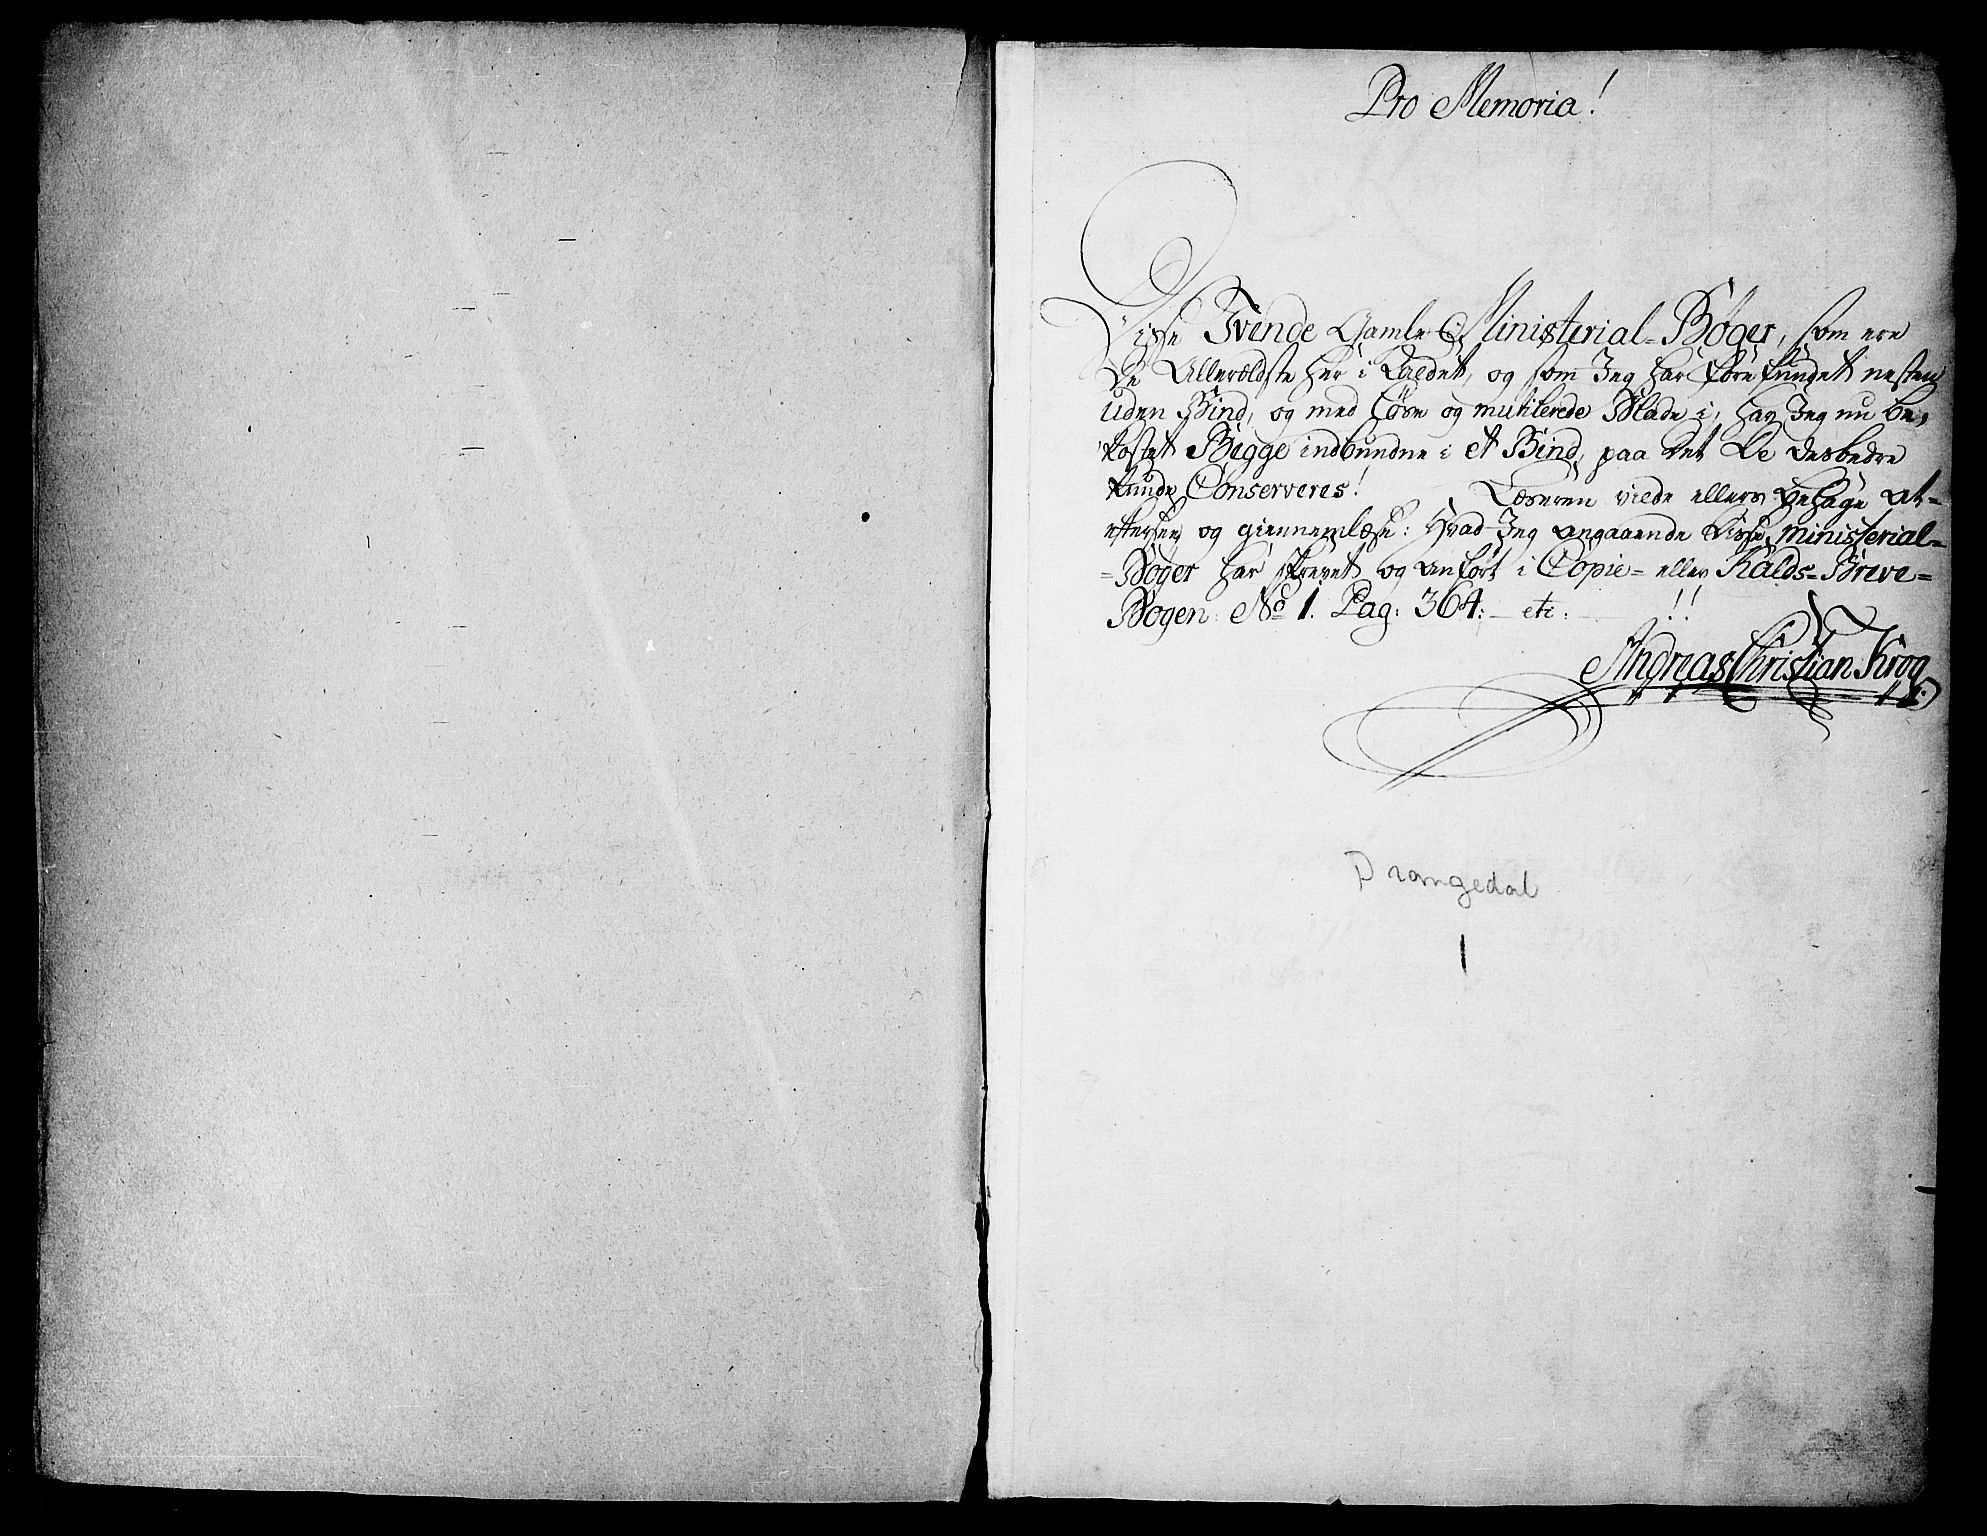 Pro Memoria!
Disse Tvende Gamle Ministerial-Bøger, som ere
De Allerældste her i Kaldet, og som Jeg har forefundet nesten
uden Bind, og med løse og mutilerede Blade i, har Jeg nu be-
kostet Begge indbundne i et Bind, paa det De desbedre
kunde Conserveres! Læseren vilde ellers behage at-
eftersee, og giennemlæse: Hvad Jeg angaaende disse Ministerial-
-Bøger har skrevet og anført i Copie- eller Kalds-Breve-
Bogen No 1. Pag: 364: - etc: - !!
Andreas Christian Krog
Drangedal
1